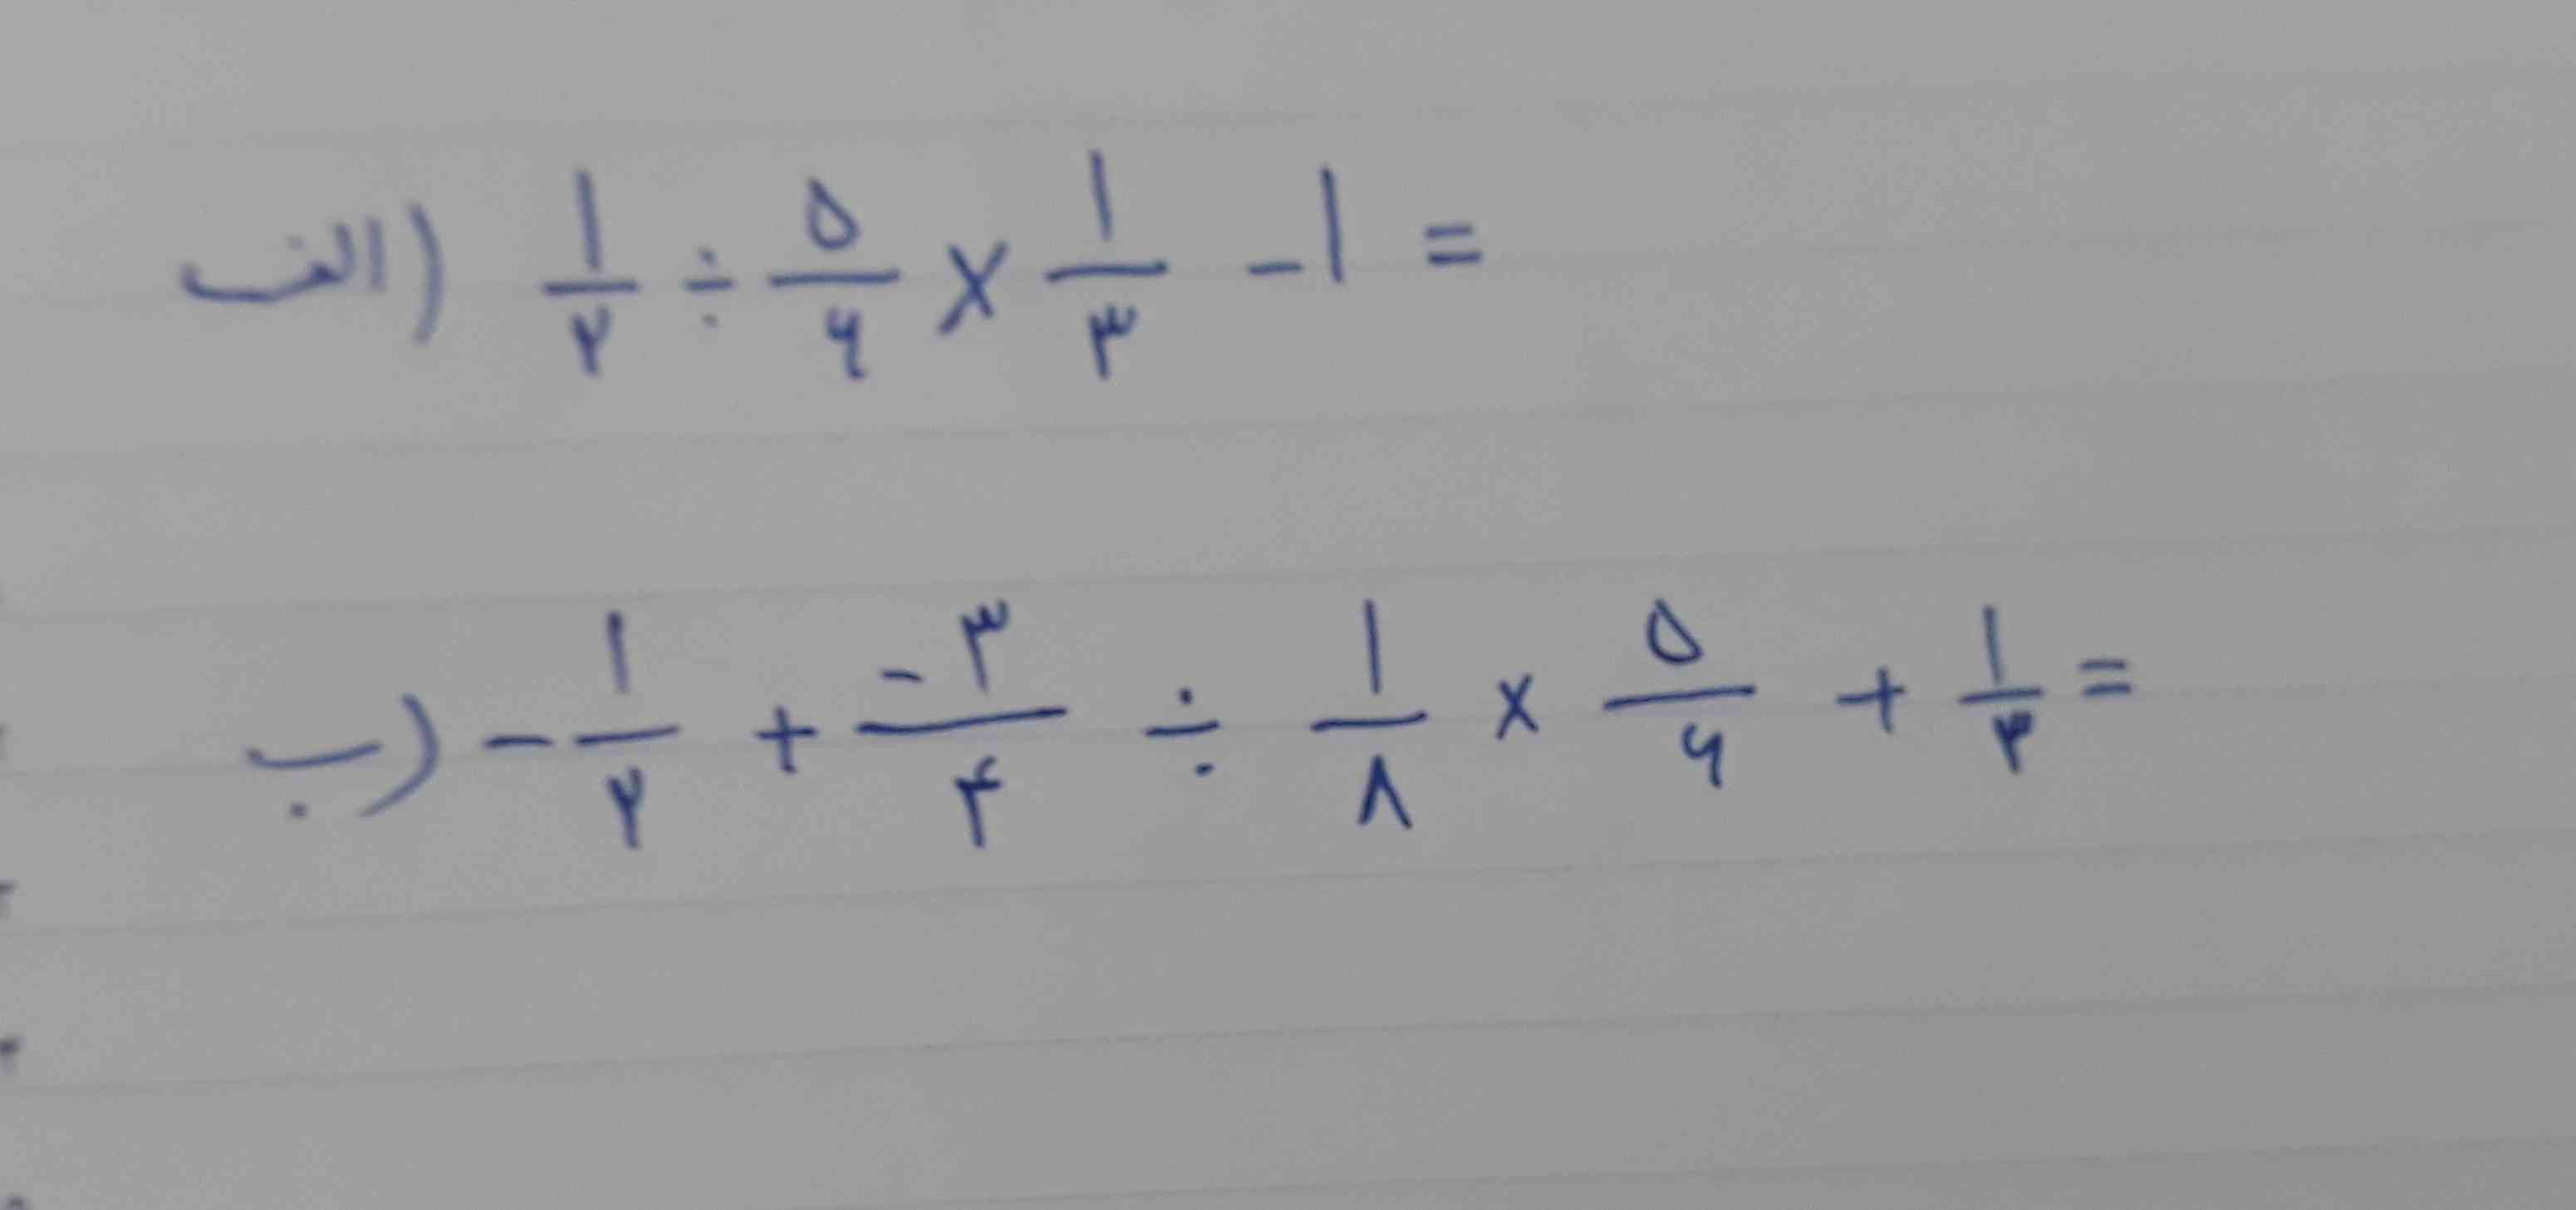 الف) ۱/۲ ÷ ۵/۶ × ۱/۳ - ۱ =
ب) - ۱/۲ + -۳/۴ ÷ ۱/۸ × ۵/۶ + ۱/۳ =